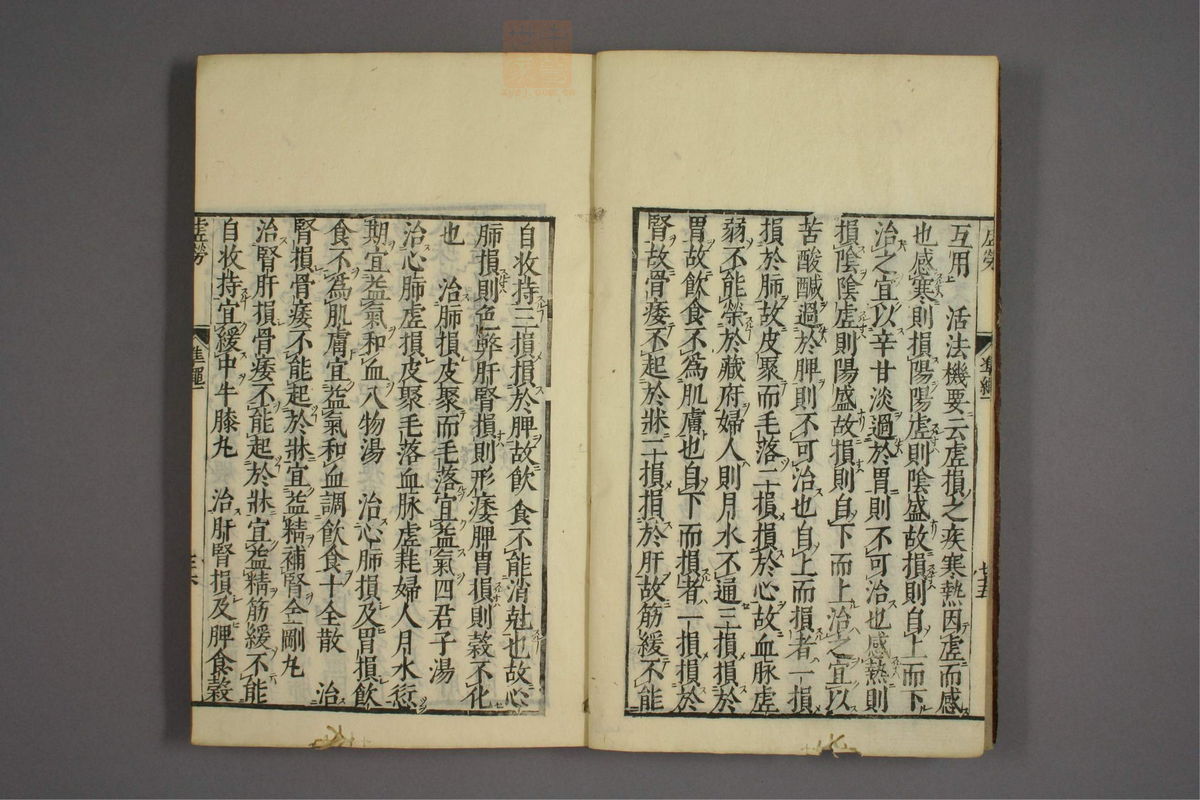 互用 活法機要云虛損之疾寒熱因虛而感
也感寒則損陽陽虛則陰盛故損則自上而下
治之宜以辛甘淡過於胃則不可治也感熱則
損陰陰虛則陽盛故損則自下而上治之宜以
苦酸醎過於脾則不可治也自上而損者一損
損於肺故皮聚而毛落二損損於心故血脉虛
弱不能榮於藏府婦人則月水不通三損損於
胃故飲食不爲肌膚也自下而損者一損損於
腎故骨痿不起於牀二損損於肝故筋緩不能
自收持三損損於脾故飲食不能消尅也故心
肺損則色弊肝腎損則形痿脾胃損則穀不化
也 治肺損皮聚而毛落宜益氣四君子湯
治心肺虛損皮聚毛落血脉虛耗婦人月水愆
期宜益氣和血八物湯 治心肺損及胃損飲
食不爲肌膚宜益氣和血調飲食十全散 治
腎損骨痿不能起於牀宜益精補腎金剛丸
治腎肝損骨痿不能起於牀宜益精筋緩不能
自收持宜緩中牛膝丸 治肝腎損及脾食穀
虛勞
準繩